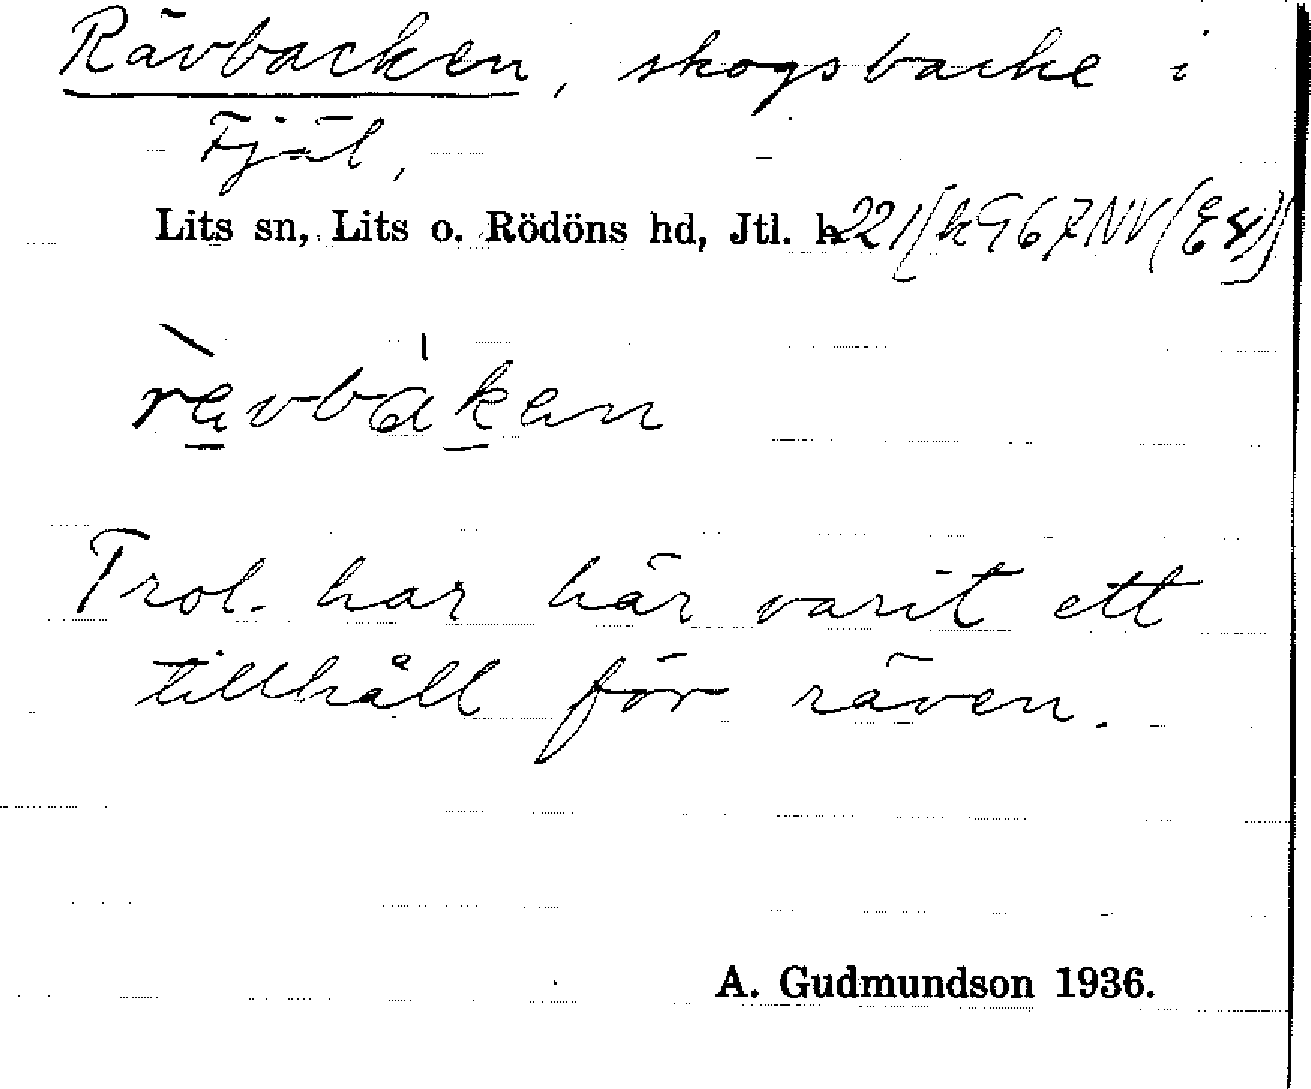 Rävbacken, skogsbacke i
Fjäl,
Lits sn, Lits o. Rödöns hd, Jtl. 221
rävbaken
Trol. har här varit ett
tillhåll för räven.
A. Gudmundson 1936.